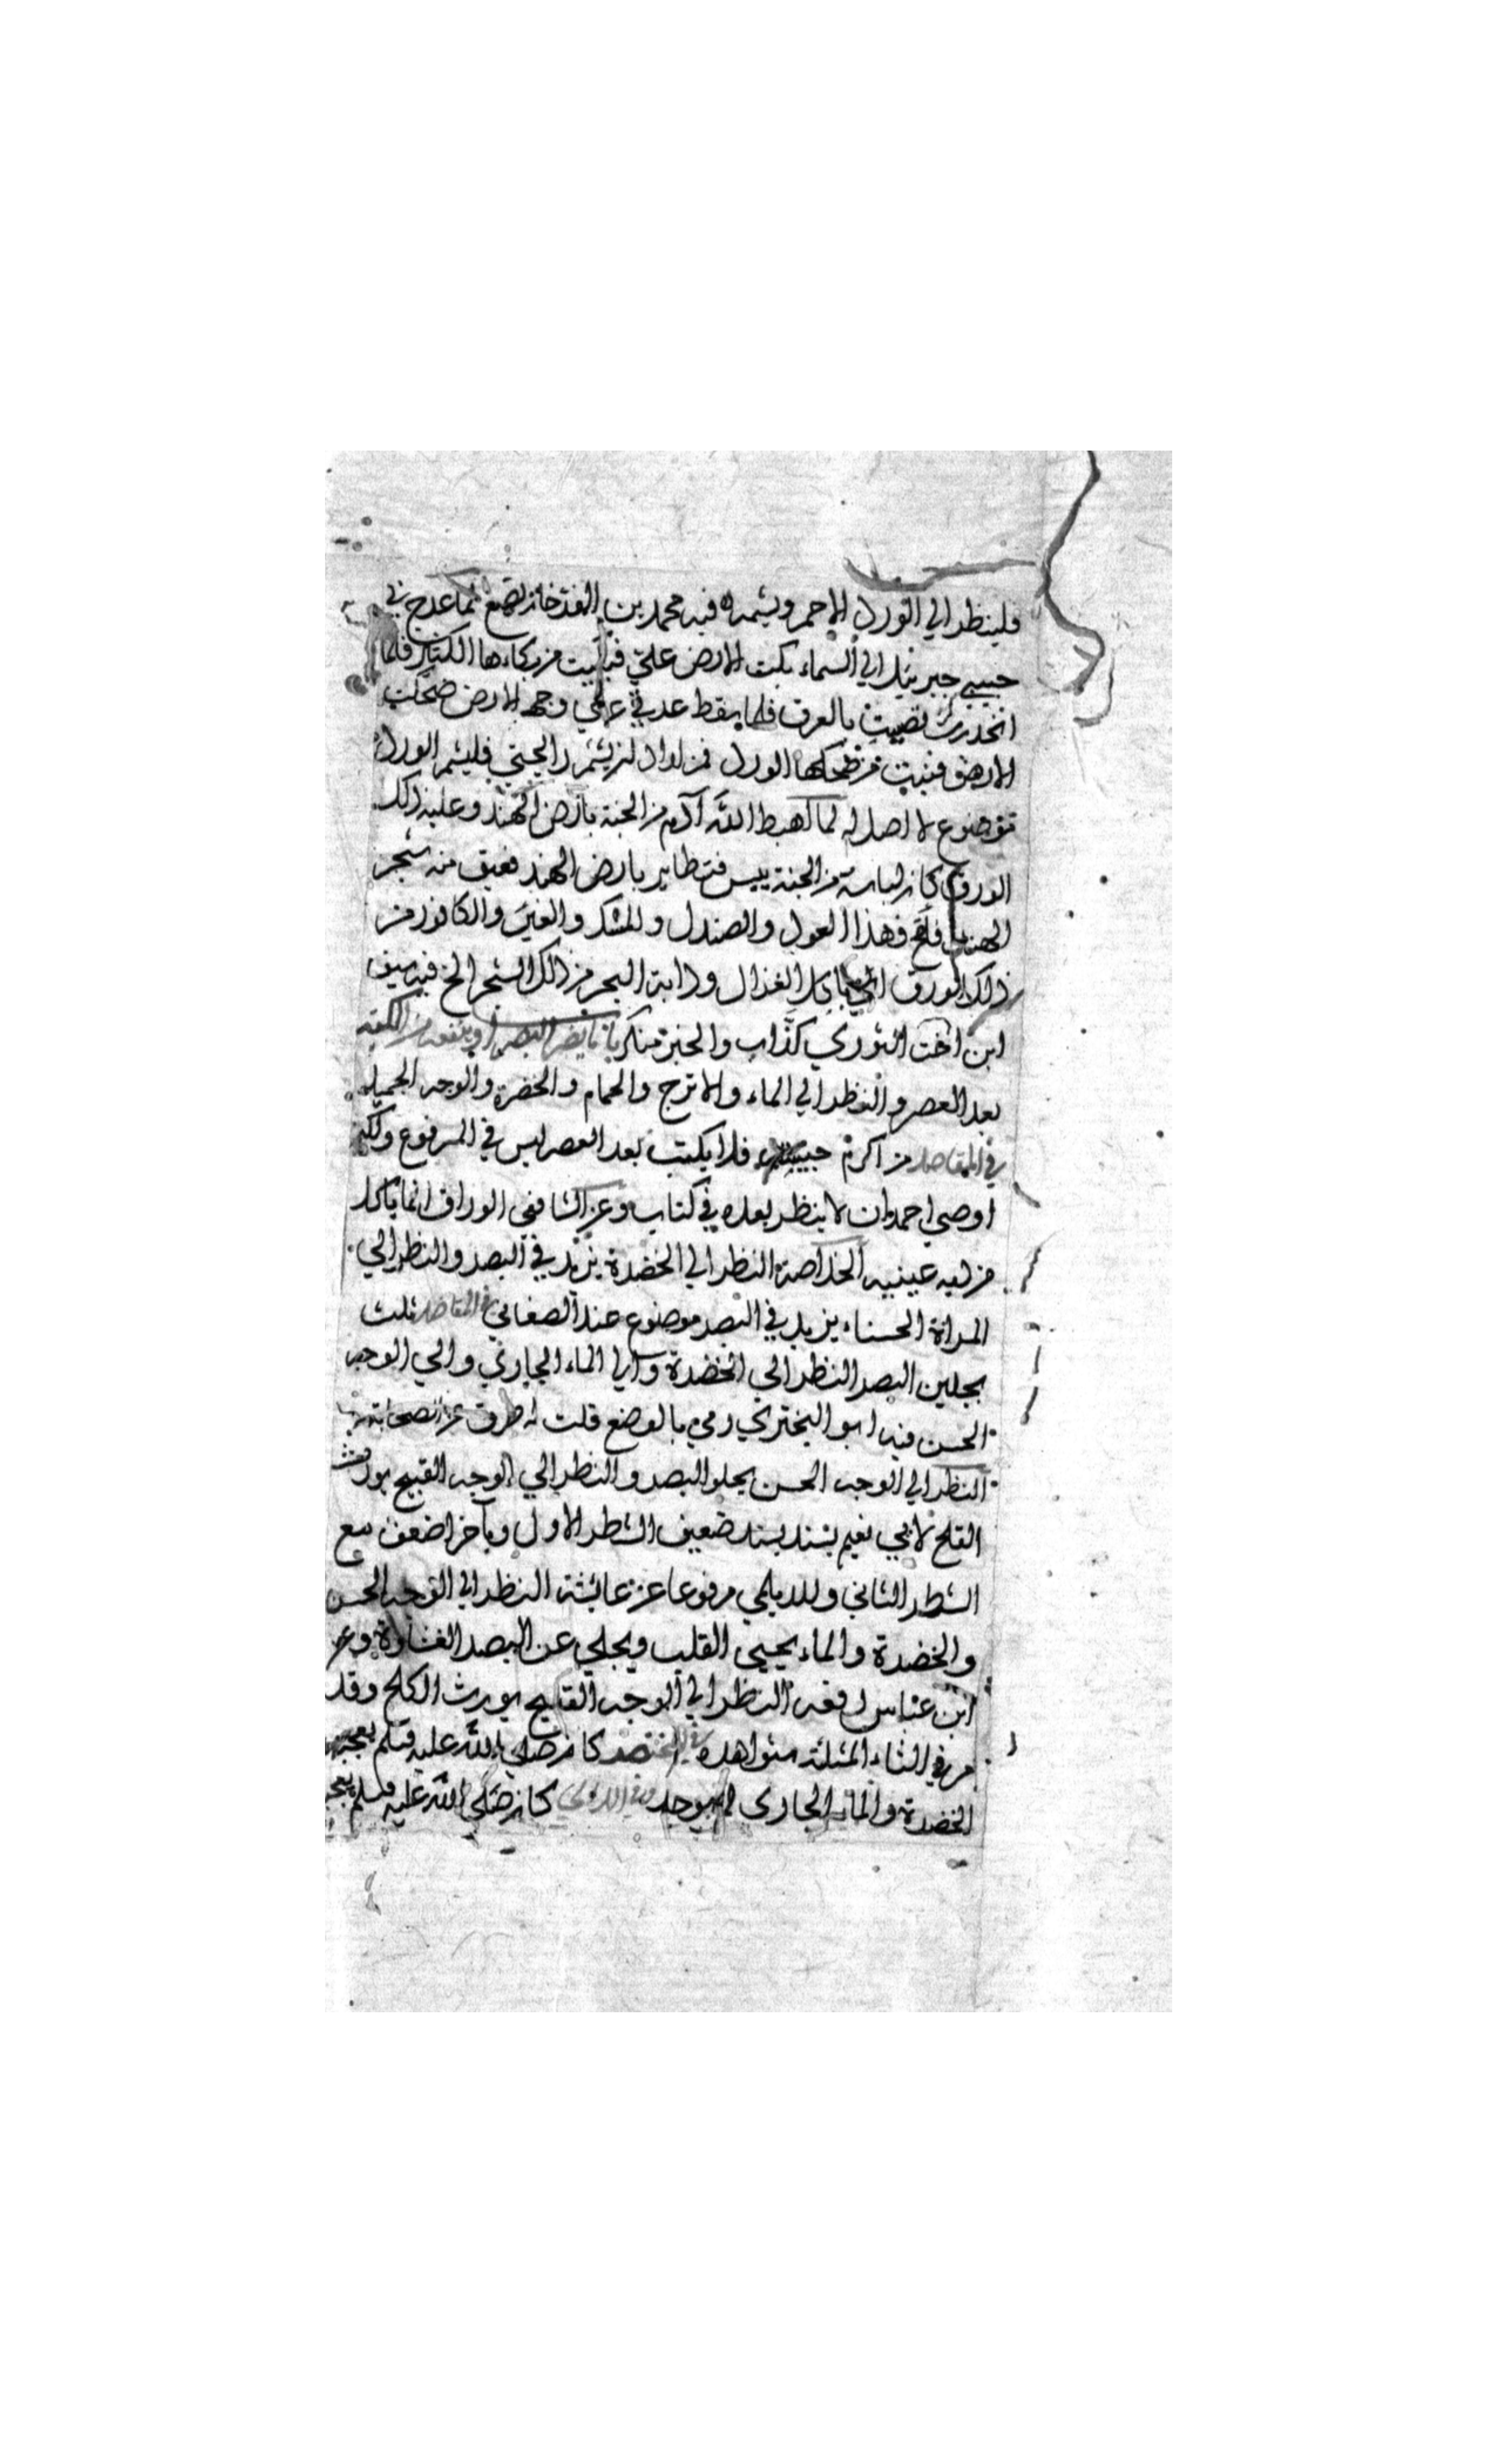 فلينظر الي الورد الاحمر ويشمه فيه محمد بن لما عرج بي
حبيبي جبرئيل الي السماء بكت الارض علي فنبتت من بكاءها الكبار فلما
انحدرت تصببت بالعرق فلما سقط عرقي علي وجه الارض ضحكت
الارض فنبتت من ضحكها الورد فمن اراد ان يشم رايحتي فليشم الورد
موضوع لا اصل له لما اهبط الله آدم من الجنة بارض الهند وعليه ذلك
الورق كان لباسه من الجنة يبس فتطاير بارض الهند فعبق منه شجر
الهند فهذا العود والصندل والمسك والعنبر والكافور من
ذلك الورق الغزال ودابة البحر من ذلك الشجر الخ فيه سيف
ابن اخت الثوري كذاب والخبر منكر باب ما يضر البصر او ينفعه من الكتبة
بعد العصر والنظر الي الماء والاترج والحمام والخضرة والوجه الجميل
في المقاصد من اكرم حبيبتيه فلا يكتب بعد العصر ليس في المرفوع ولكن
اوصي احمد ان لا ينظر بعده في كتاب وعن الشافعي الوراق انما ياكل
من دية عينيه الخلاصة النظر الي الخضرة يزيد في البصر والنظر الي
المراة الحسناء يزيد في البصر موضوع عند الصغاني في المقاصد ثلث
يجلين البصر النظر الي الخضرة والي الماء الجاري والي الوجه
الحسن فيه ابو البختري رمي بالوضع قلت له طرق عن الصحابة
النظر الي الوجه الحسن يجلو البصر والنظر الي الوجه القبيح يورث
القلح لابي نعيم بسند ضعيف الشطر الاول وبآخر اضعف مع
الشطر الثاني وللديلمي مرفوعا عن عائشة النظر الي الوجه الحسن
والخضرة والماء يحيي القلب ويجلي عن البصر الغشاوة وعن
ابن عباس رفعه النظر الي الوجه القبيح يورث الكلح وقد
مر في الثاء المثلثة شواهده في المختصر كان صلي الله عليه وسلم يعجبه
الخضرة والماء الجاري لم يوجد وفي اللآلي كان صلي الله عليه وسلم يعجبه